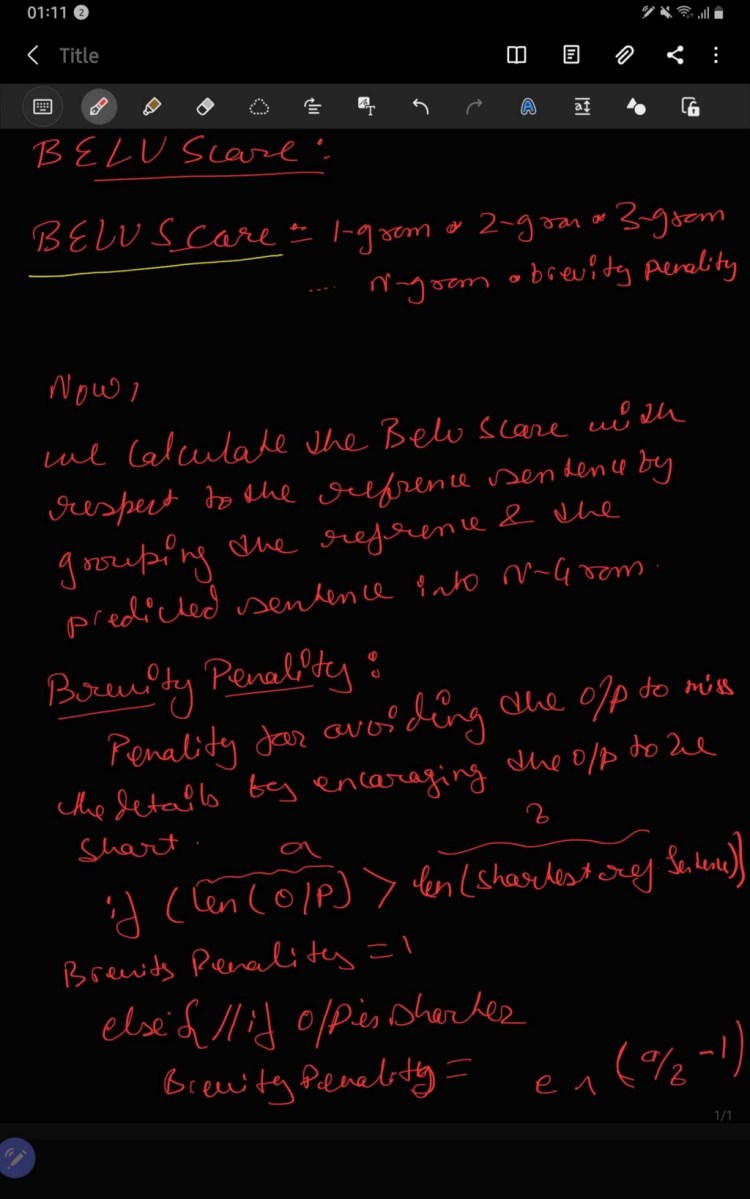 01:11 2
Title
BELU Scare:
BELU Scare = 1-gram * 2-gram * 3-gram
.... N-gram * brevity penality
Now,
we calculate the Belu Scare with
respect to the refrence sentence by
grouping the refrence & the
predicted sentence into N-Gram.
Brevity Penality:
Penality for avoiding the O/P to miss
the details by encaraging the O/P to be
shart.
a
b
if (len(O/P) > len(shartest ref. Sentence))
Brevity Penality = 1
else{ //if O/P is sharter
Brevity Penality = e ^ (a/b -1)
1/1